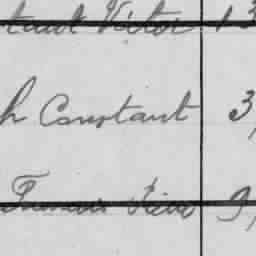 tant Victor 13
h Constant 3,
Francis 9,